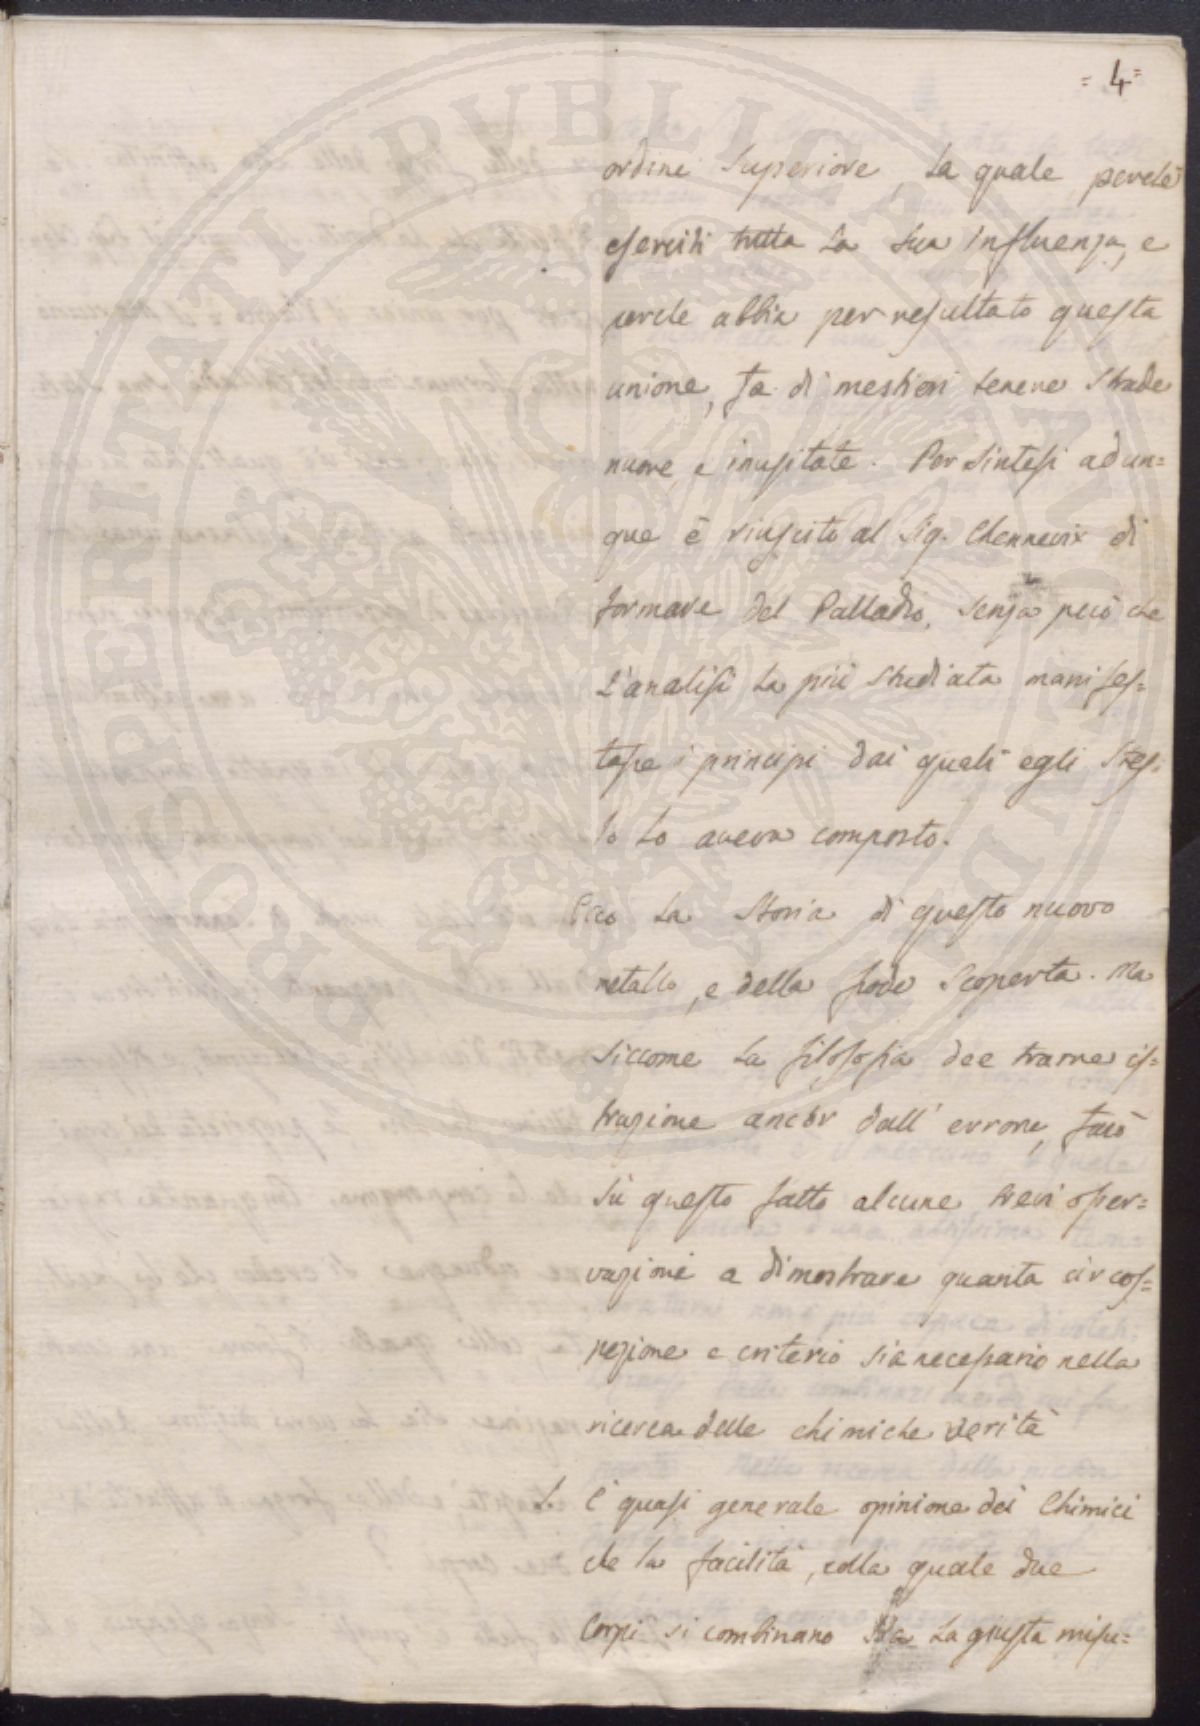 = 4 =
ordine Superiore, la quale perchè
eserciti tutta la sua influenza, e
perche abbia per resultato questa
unione, fa di mestieri tenere Strade
nuove, e inusitate. Per Sintesi adun=
que è riuscito al Sig. Chennevix di
formare del Palladio, senza però che
l'analisi la più Studiata manifes=
tasse i principj dai quali egli Stes=
so lo aveva composto.
Ecco la Storia di questo nuovo
metallo, e della sua Scoperta. Ma
Siccome la filosofia dee trarre is=
truzione ancor dall' errore, farò
sù questo fatto alcune brevi osser=
vazioni a dimostrare quanta circos=
pezione e criterio sia necessario nella
ricerca delle chimiche verità
1. È quasi generale opinione dei Chimici
che la facilità, colla quale due
Corpi si combinano sia la giusta misu=
PROSPERITATI PUBLICAE AUGENDAE